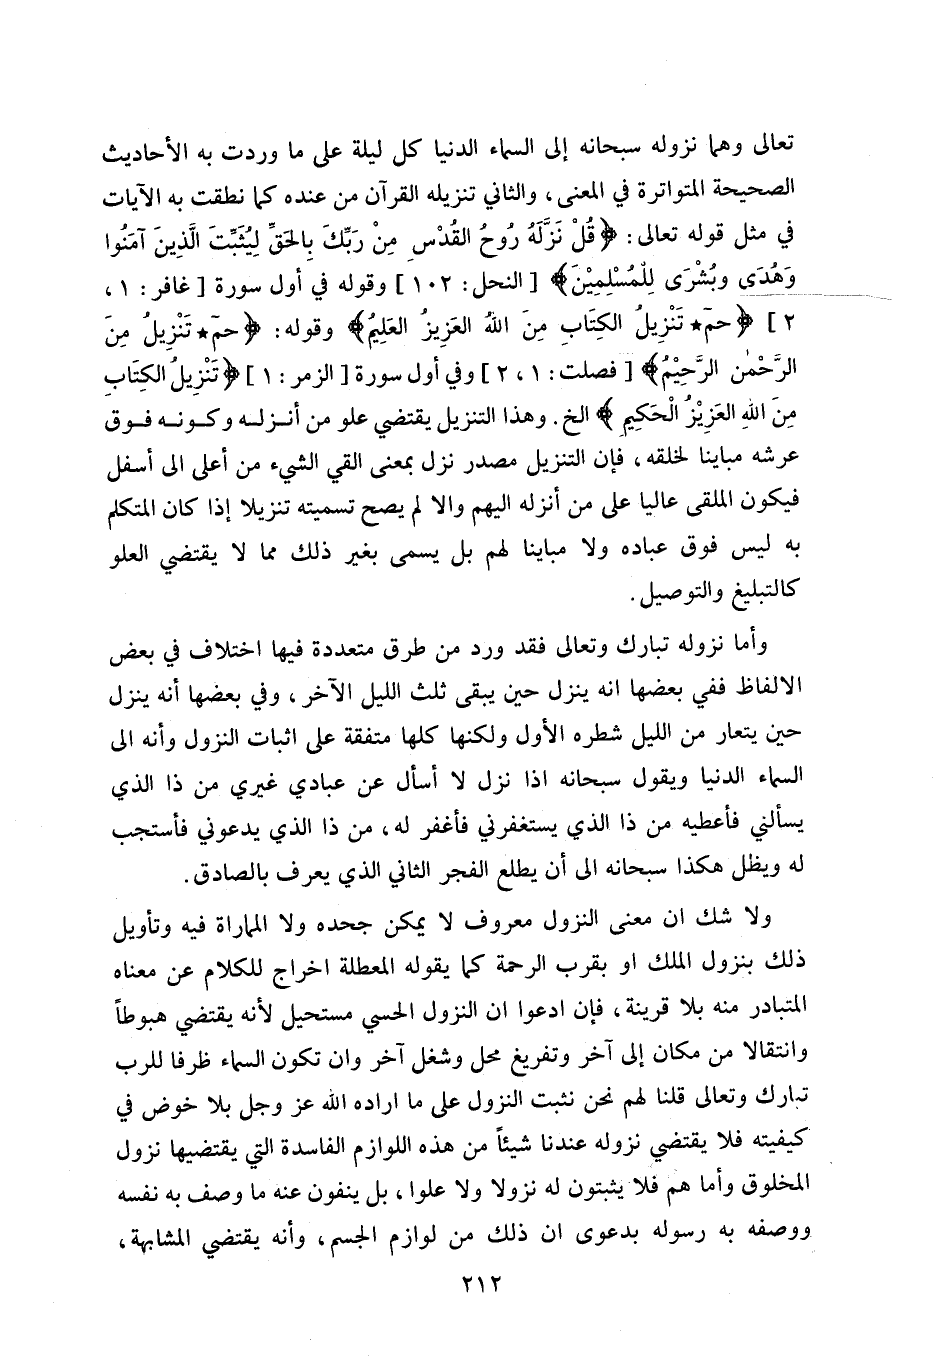 تعالى وهما نزوله سبحانه إلى السماء الدنيا كل ليلة على ما وردت به الأحاديث
الصحيحة المتواترة في المعنى ، والثاني تنزيله القرآن من عنده كما نطقت به الآيات
في مثل قوله تعالى : ﴿ قُلْ نَزَّلَهُ رُوحُ القُدْسِ مِنْ رَبِّكَ بِالحَقِّ لِيُثَبِّتَ الَّذِينَ آمَنُوا
وَهُدَى وبُشْرَى لِلْمُسْلِمِيْنَ ﴾ [ النحل : ١٠٢ ] وقوله في أول سورة [ غافر : ١ ،
٢ ] ﴿ حمَ * تَنْزِيلُ الكِتَابِ مِنَ اللهُ العَزِيزُ العَلِيمُ ﴾ وقوله : ﴿ حمَ * تَنْزِيلُ مِنَ
الرَّحْمٰن الرَّحِيْمُ ﴾ [ فصلت : ١ ، ٢ ] وفي أول سورة [ الزمر : ١ ] ﴿ تَنْزِيلُ الكِتَابِ
مِنَ اللهِ العَزِيْزُ الْحَكِيمِ ﴾ الخ . وهذا التنزيل يقتضي علو من أنـزلـه وكـونـه فـوق
عرشه مباينا لخلقه ، فإن التنزيل مصدر نزل بمعنى القي الشيء من أعلى الى أسفل
فيكون الملقى عاليا على من أنزله اليهم والا لم يصح تسميته تنزيلا إذا كان المتكلم
به ليس فوق عباده ولا مباينا لهم بل يسمى بغير ذلك مما لا يقتضي العلو
كالتبليغ والتوصيل .
وأما نزوله تبارك وتعالى فقد ورد من طرق متعددة فيها اختلاف في بعض
الالفاظ ففي بعضها انه ينزل حين يبقى ثلث الليل الآخر ، وفي بعضها أنه ينزل
حين يتعار من الليل شطره الأول ولكنها كلها متفقة على اثبات النزول وأنه الى
السماء الدنيا ويقول سبحانه اذا نزل لا أسأل عن عبادي غيري من ذا الذي
يسألني فأعطيه من ذا الذي يستغفرني فأغفر له ، من ذا الذي يدعوني فأستجب
له ويظل هكذا سبحانه الى أن يطلع الفجر الثاني الذي يعرف بالصادق .
ولا شك ان معنى النزول معروف لا يمكن جحده ولا المماراة فيه وتأويل
ذلك بنزول الملك او بقرب الرحمة كما يقوله المعطلة اخراج للكلام عن معناه
المتبادر منه بلا قرينة ، فإن ادعوا ان النزول الحسي مستحيل لأنه يقتضي هبوطاً
وانتقالا من مكان إلى آخر وتفريغ محل وشغل آخر وان تكون السماء ظرفا للرب
تبارك وتعالى قلنا لهم نحن نثبت النزول على ما اراده الله عز وجل بلا خوض في
كيفيته فلا يقتضي نزوله عندنا شيئاً من هذه اللوازم الفاسدة التي يقتضيها نزول
المخلوق وأما هم فلا يثبتون له نزولا ولا علوا ، بل ينفون عنه ما وصف به نفسه
ووصفه به رسوله بدعوى ان ذلك من لوازم الجسم ، وأنه يقتضي المشابهة ،
٢١٢